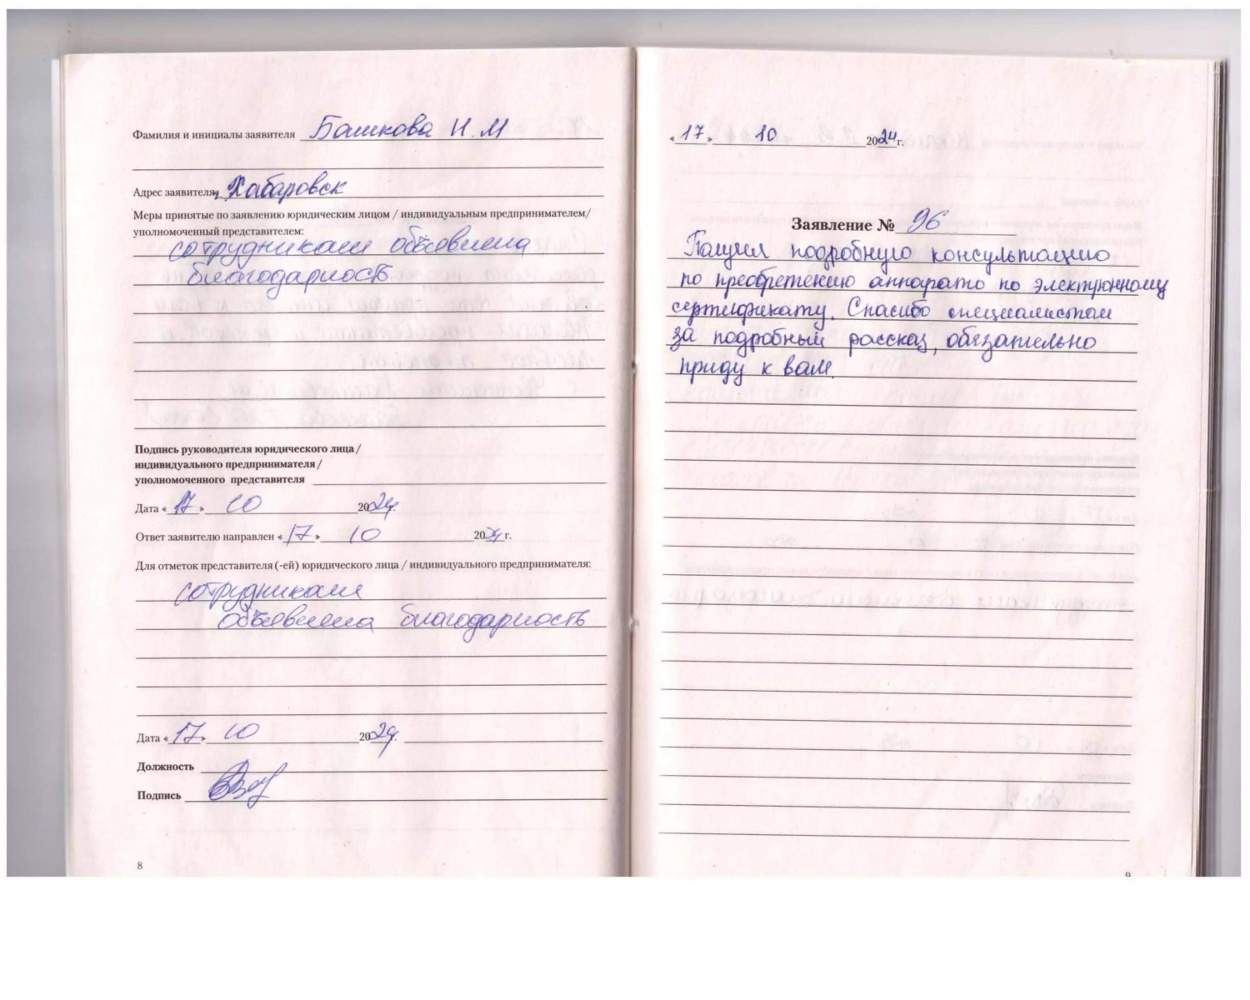 Фамилия и инициалы заявителя Башкова Н.М
Адрес заявителя г. Хабаровск
Меры принятые по заявлению юридическим лицом / индивидуальным предпринимателем/
уполномоченный представителем:
сотрудникам объявлена
благодарность
Подпись руководителя юридического лица /
индивидуального предпринимателя /
уполномоченного представителя
Дата «17» 10 2024г.
Ответ заявителю направлен «17» 10 2024 г.
Для отметок представителя (-ей) юридического лица / индивидуального предпринимателя:
сотрудникам
объявлена благодарность
Дата «17» 10 2024г.
Должность
Подпись
8
«17» 10 2024г.
Заявление № 96
Получил подробную консультацию
по преобретению аппарата по электронному
сертификату. Спасибо специалистам
за подробный рассказ, обязательно
приду к вам.
9